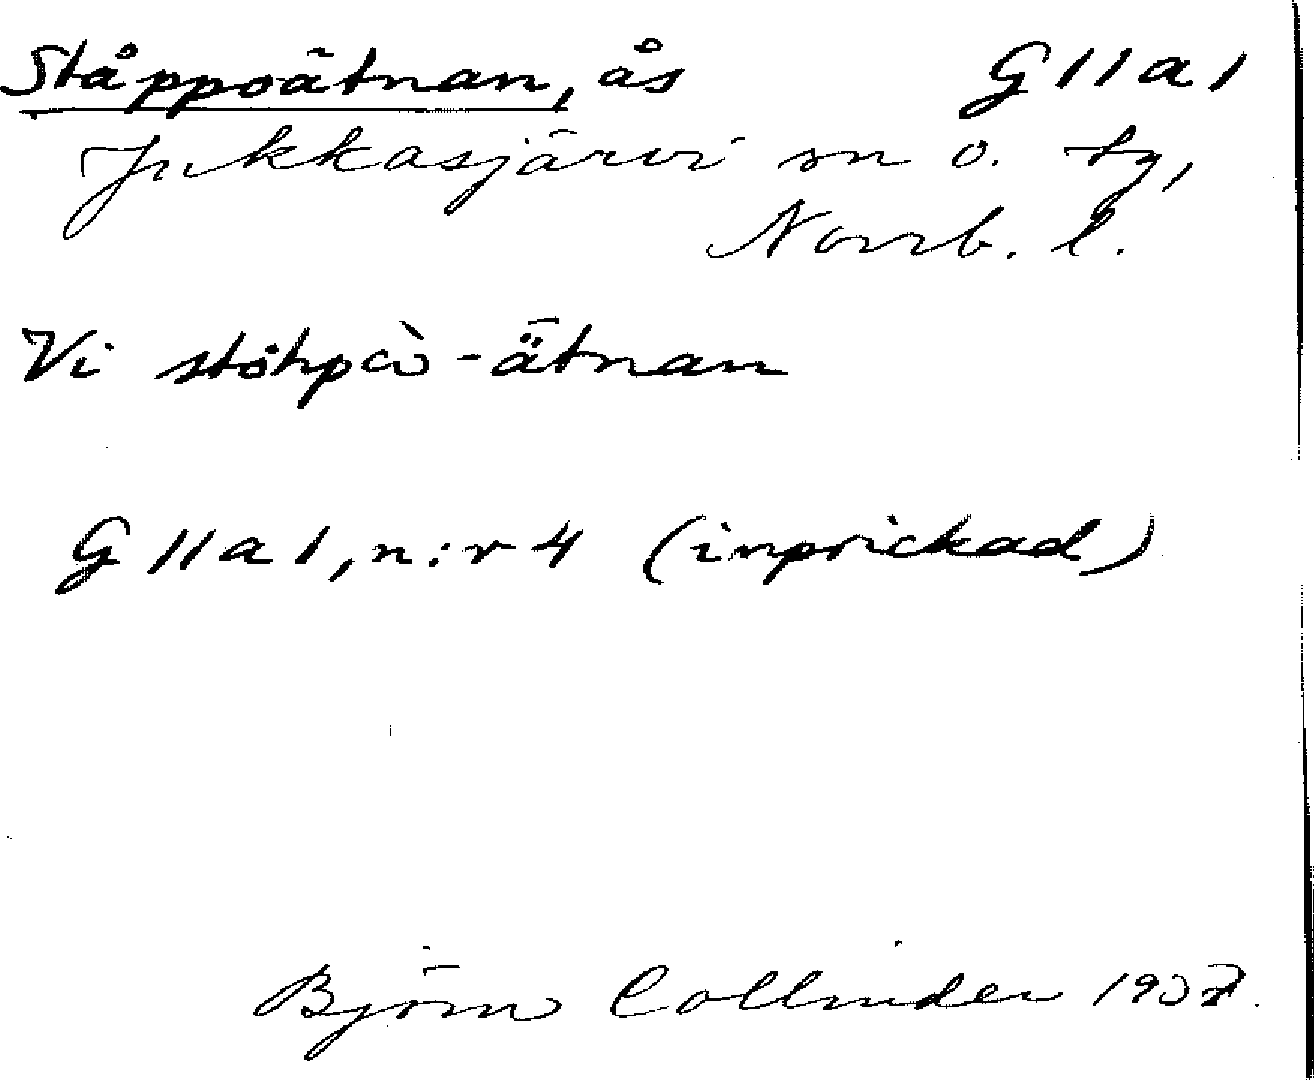 Ståppoätnan, ås G 11 a 1
Jukkasjärvi sn o. tg,
Norrb. l.
Vi ståhpò-ätnan
G 11 a 1, n:r 4 (inprickad)
Björn Collinder 1937.